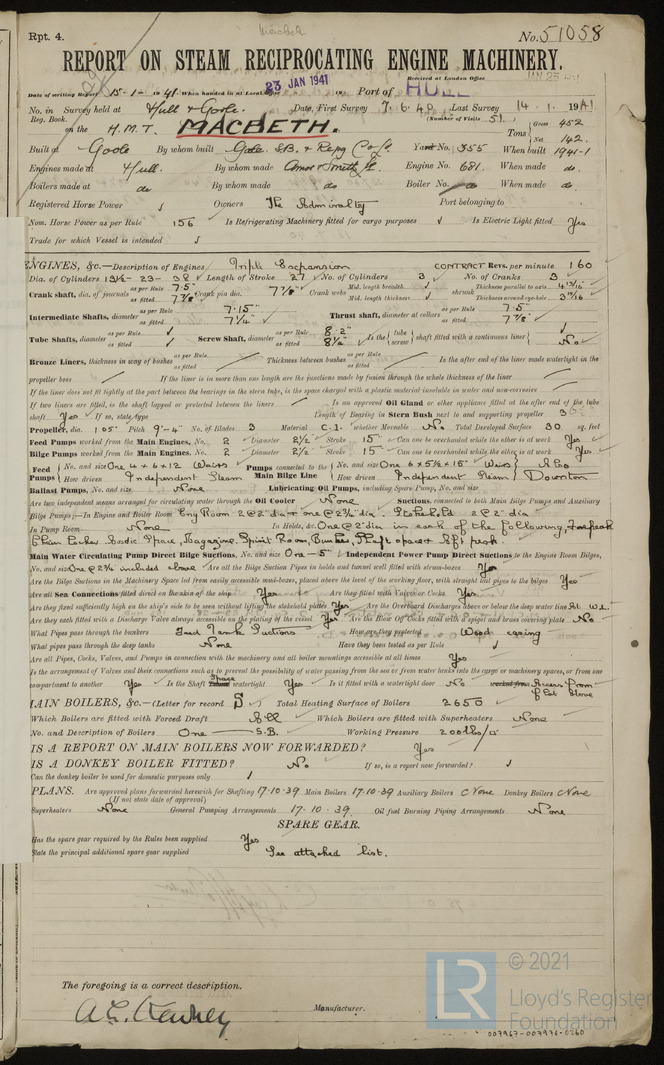 Rpt. 4.
No. 51058
REPORT ON STEAM RECIPROCATING ENGINE MACHINERY.
Received at London Office
Date of writing Report 15-1-1941 When handed in at Local Office 23 JAN 1941 Port of HULL
No. in Survey held at Hull & Goole. Date, First Survey 7.6.40 Last Survey 14.1.1941
Reg. Book. (Number of Visits 51)
on the H.M.T. MACBETH. Tons Gross 452 Net 142
Built at Goole By whom built S.B. & Repg Co Ld Yard No. 355 When built 1941-1
Engines made at Hull. By whom made Engine No. 681 When made do.
Boilers made at do By whom made do Boiler No. When made do.
Registered Horse Power Owners The Admiralty Port belonging to
Nom. Horse Power as per Rule 156 Is Refrigerating Machinery fitted for cargo purposes Is Electric Light fitted Yes
Trade for which Vessel is intended
ENGINES, &c.—Description of Engines Triple Expansion CONTRACT Revs. per minute 160
Dia. of Cylinders 13½ - 23 - 38 Length of Stroke 27 No. of Cylinders 3 No. of Cranks 3
Crank shaft, dia. of journals as per Rule 7.5" as fitted 7⅞" Crank pin dia. 7⅞" Crank webs Mid. length breadth Mid. length thickness shrunk Thickness parallel to axis 4 13/16" Thickness around eye-hole 3 15/16"
Intermediate Shafts, diameter as per Rule 7.15" as fitted 7¼" Thrust shaft, diameter at collars as per Rule 7.5" as fitted 7⅞"
Tube Shafts, diameter as per Rule as fitted Screw Shaft, diameter as per Rule 8.2" as fitted 8½" Is the tube screw shaft fitted with a continuous liner No
Bronze Liners, thickness in way of bushes as per Rule as fitted Thickness between bushes as per Rule as fitted Is the after end of the liner made watertight in the
propeller boss If the liner is in more than one length are the junctions made by fusion through the whole thickness of the liner
If the liner does not fit tightly at the part between the bearings in the stern tube, is the space charged with a plastic material insoluble in water and non-corrosive
If two liners are fitted, is the shaft lapped or protected between the liners Is an approved Oil Gland or other appliance fitted at the after end of the tube
shaft Yes If so, state type Length of Bearing in Stern Bush next to and supporting propeller
Propeller, dia. 105" Pitch 9'-4" No. of Blades 3 Material C.I. whether Moveable No Total Developed Surface 30 sq. feet
Feed Pumps worked from the Main Engines, No. 2 Diameter 2½" Stroke 15" Can one be overhauled while the other is at work Yes
Bilge Pumps worked from the Main Engines, No. 2 Diameter 2½" Stroke 15" Can one be overhauled while the other is at work Yes
Feed Pumps No. and size One 4 x 6 x 12 Weirs Pumps connected to the Main Bilge Line No. and size One 6 x 5½ x 15" Weirs Also
How driven Independent Steam How driven Independent Steam Downton
Ballast Pumps, No. and size None Lubricating Oil Pumps, including Spare Pump, No. and size
Are two independent means arranged for circulating water through the Oil Cooler None Suctions, connected to both Main Bilge Pumps and Auxiliary
Bilge Pumps;—In Engine and Boiler Room Eng Room 2 @ 2" dia - one @ 2¾" dia. Stokehold 2 @ 2" dia
In Pump Room None In Holds, &c. One @ 2" dia in each of the following, Forepeak
Chain Locker. Asdic Space, Magazine. Spirit Room, Bunker, Shaft space & Aft peak.
Main Water Circulating Pump Direct Bilge Suctions, No. and size One - 5" Independent Power Pump Direct Suctions to the Engine Room Bilges,
No. and size One @ 2¾ included above Are all the Bilge Suction Pipes in holds and tunnel well fitted with strum-boxes Yes
Are the Bilge Suctions in the Machinery Space led from easily accessible mud-boxes, placed above the level of the working floor, with straight tail pipes to the bilges Yes
Are all Sea Connections fitted direct on the skin of the ship Yes Are they fitted with Valves or Cocks Yes
Are they fixed sufficiently high on the ship's side to be seen without lifting the stokehold plates Yes Are the Overboard Discharges above or below the deep water line At W.L.
Are they each fitted with a Discharge Valve always accessible on the plating of the vessel Yes Are the Blow Off Cocks fitted with a spigot and brass covering plate No
What Pipes pass through the bunkers Feed Tank Suctions How are they protected Wood casing
What pipes pass through the deep tanks None Have they been tested as per Rule
Are all Pipes, Cocks, Valves, and Pumps in connection with the machinery and all boiler mountings accessible at all times Yes
Is the arrangement of Valves and their connections such as to prevent the possibility of water passing from the sea or from water tanks into the cargo or machinery spaces, or from one
compartment to another Yes Is the Shaft Space watertight Yes Is it fitted with a watertight door No worked from Access from flat above
MAIN BOILERS, &c.—(Letter for record S) Total Heating Surface of Boilers 2650
Which Boilers are fitted with Forced Draft All Which Boilers are fitted with Superheaters None
No. and Description of Boilers One - S.B. Working Pressure 200 lbs/□"
IS A REPORT ON MAIN BOILERS NOW FORWARDED? Yes
IS A DONKEY BOILER FITTED? No If so, is a report now forwarded?
Can the donkey boiler be used for domestic purposes only
PLANS. Are approved plans forwarded herewith for Shafting 17.10.39 Main Boilers 17.10.39 Auxiliary Boilers None Donkey Boilers None
(If not state date of approval)
Superheaters None General Pumping Arrangements 17.10.39. Oil fuel Burning Piping Arrangements None
SPARE GEAR.
Has the spare gear required by the Rules been supplied Yes
State the principal additional spare gear supplied See attached list.
The foregoing is a correct description.
Manufacturer.
LR
© 2021
Lloyd's Register
Foundation
007967-007976-0260